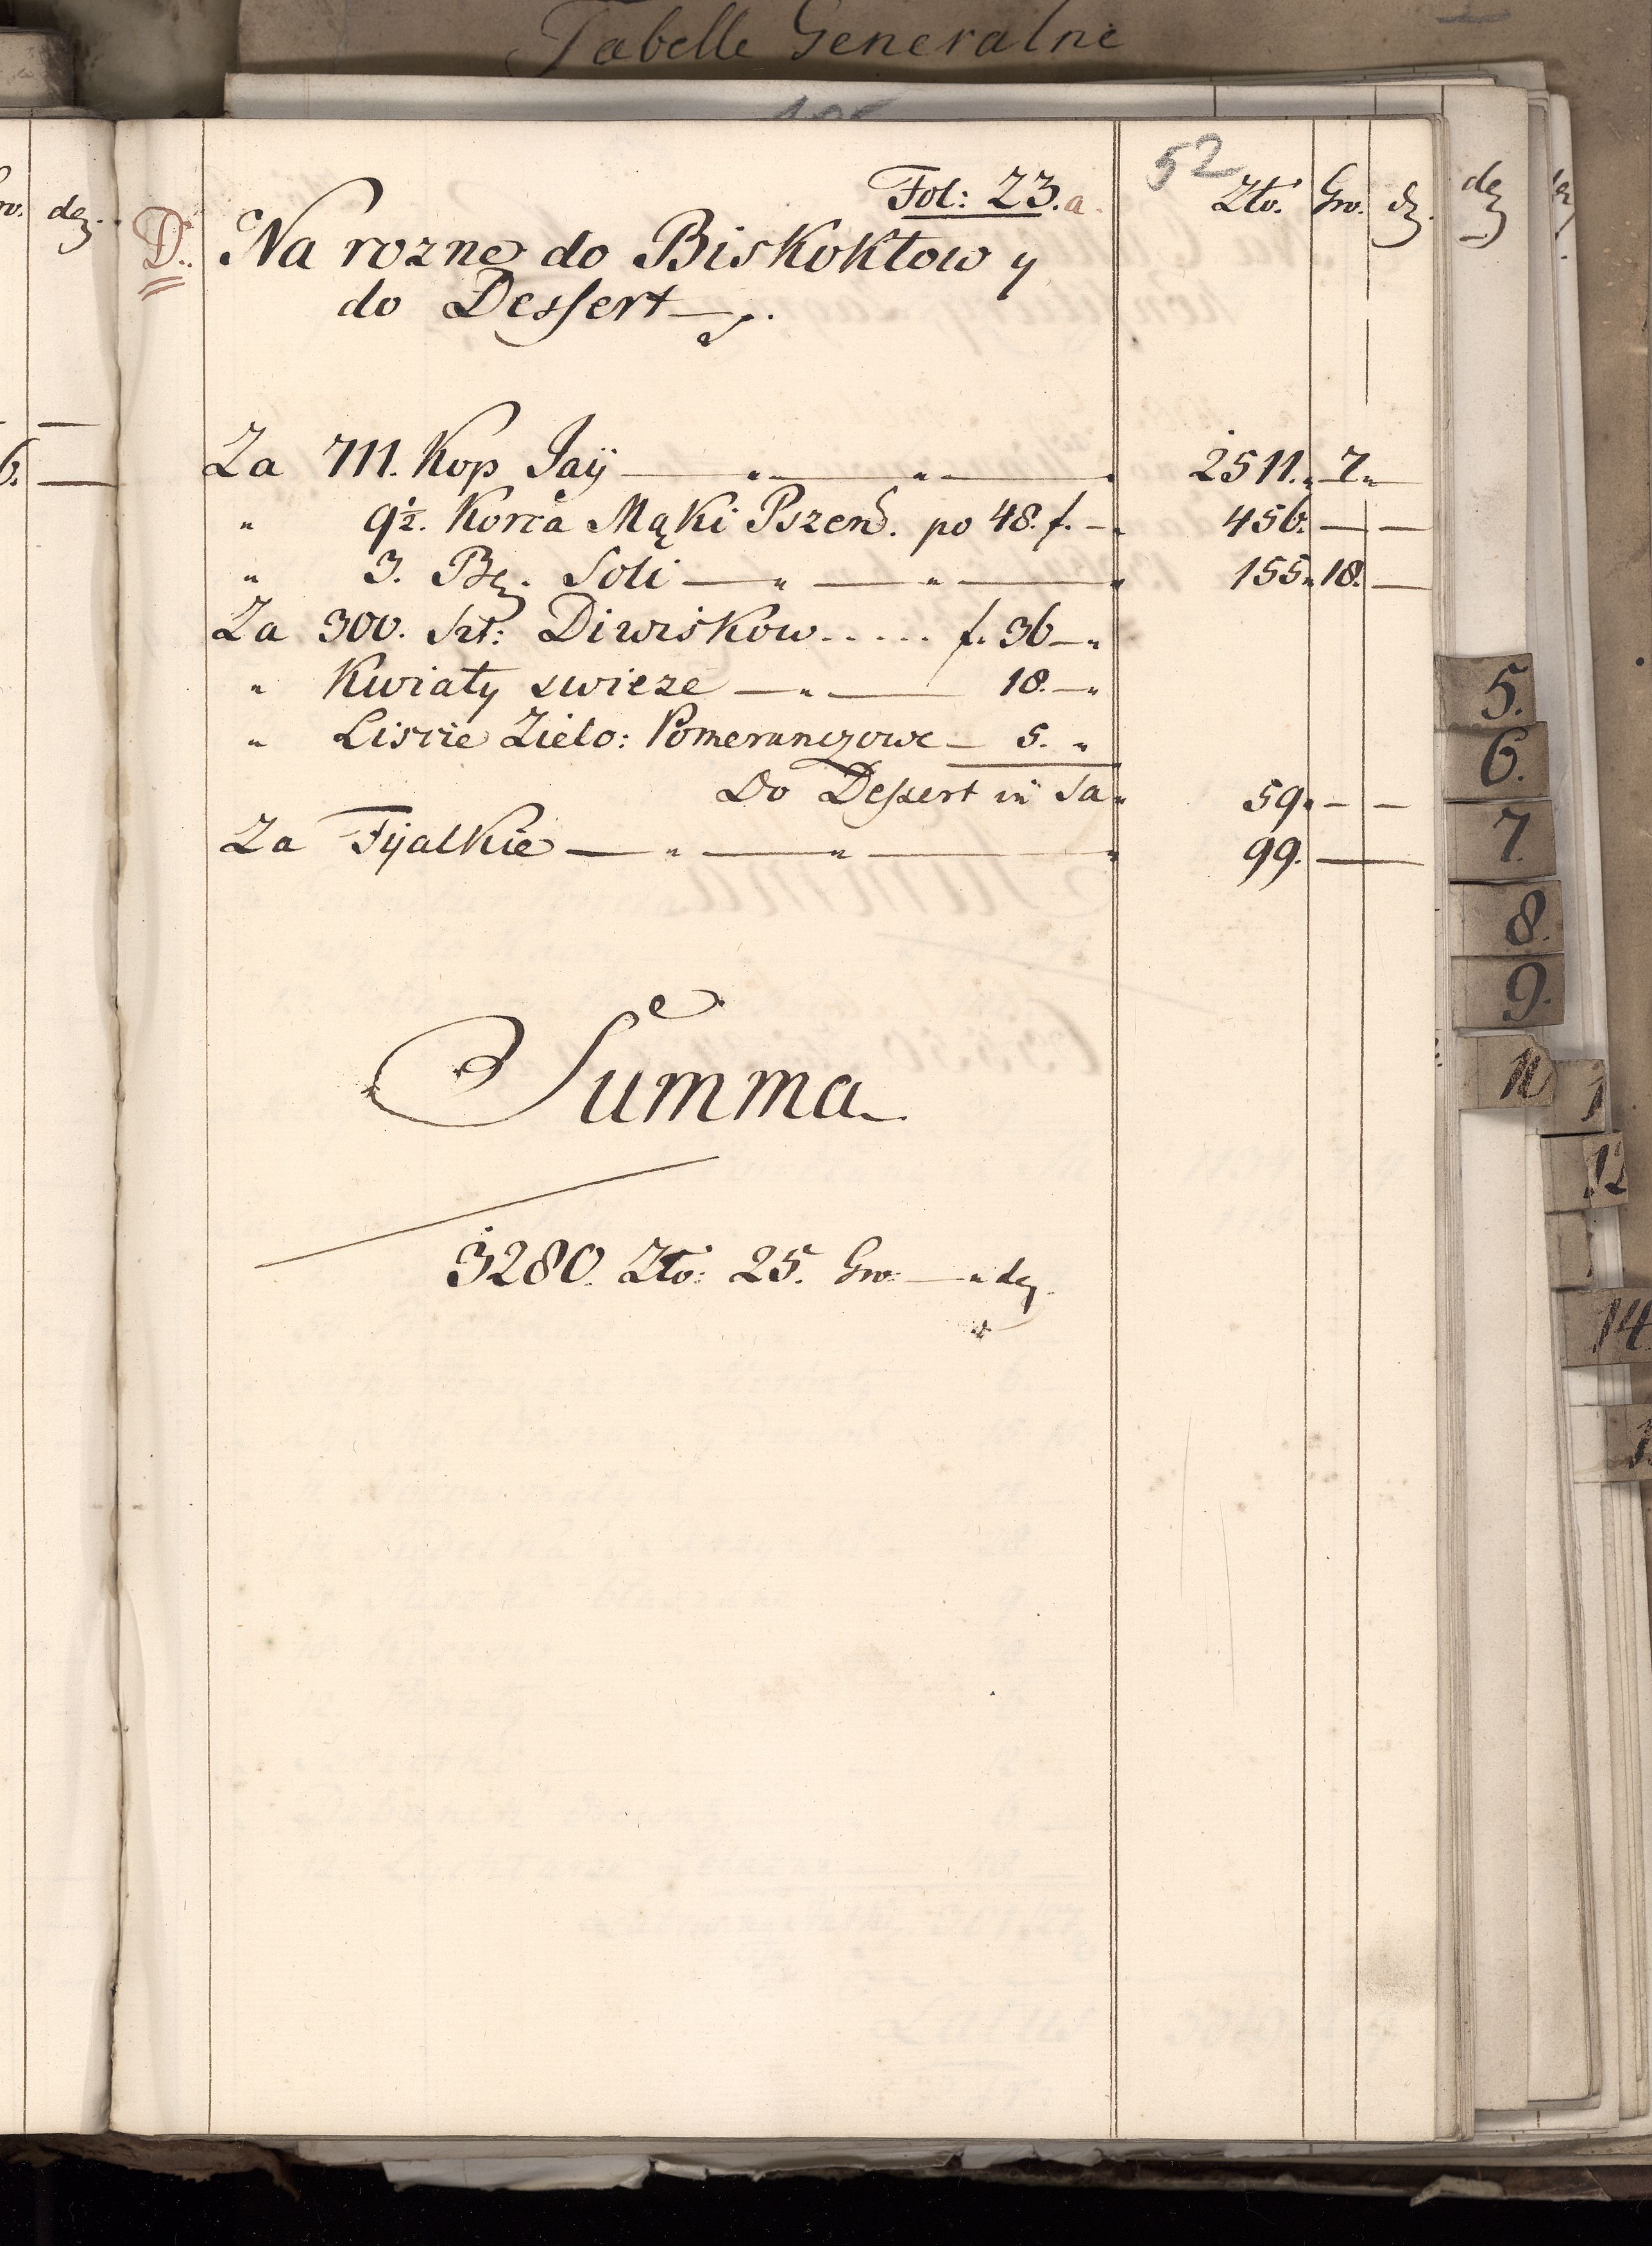 Tabelle Generalne
52
Fol: 23.a. Zło. Gro. dz.
D. Na rozne do Biskoktow y
do Dessert
Za 711. Kop Jaÿ 2511. 7.
" 9½. Korca Mąki Pszen. po 48. f. 456. — —
" 3. Be. Soli 155. 18. —
Za 300. Szt: Diwiskow..... f. 36 — "
" Kwiaty swieze — " — 18. — "
" Liscie Zielo: Pomeranczowe — 5. "
Do Dessert in Sa " 59. — —
Za Fijalkie — " — " — 99. —
Summa
3280. Zło: 25. Gro: — " dz.
5.
6.
7.
8.
9.
11
12
14.